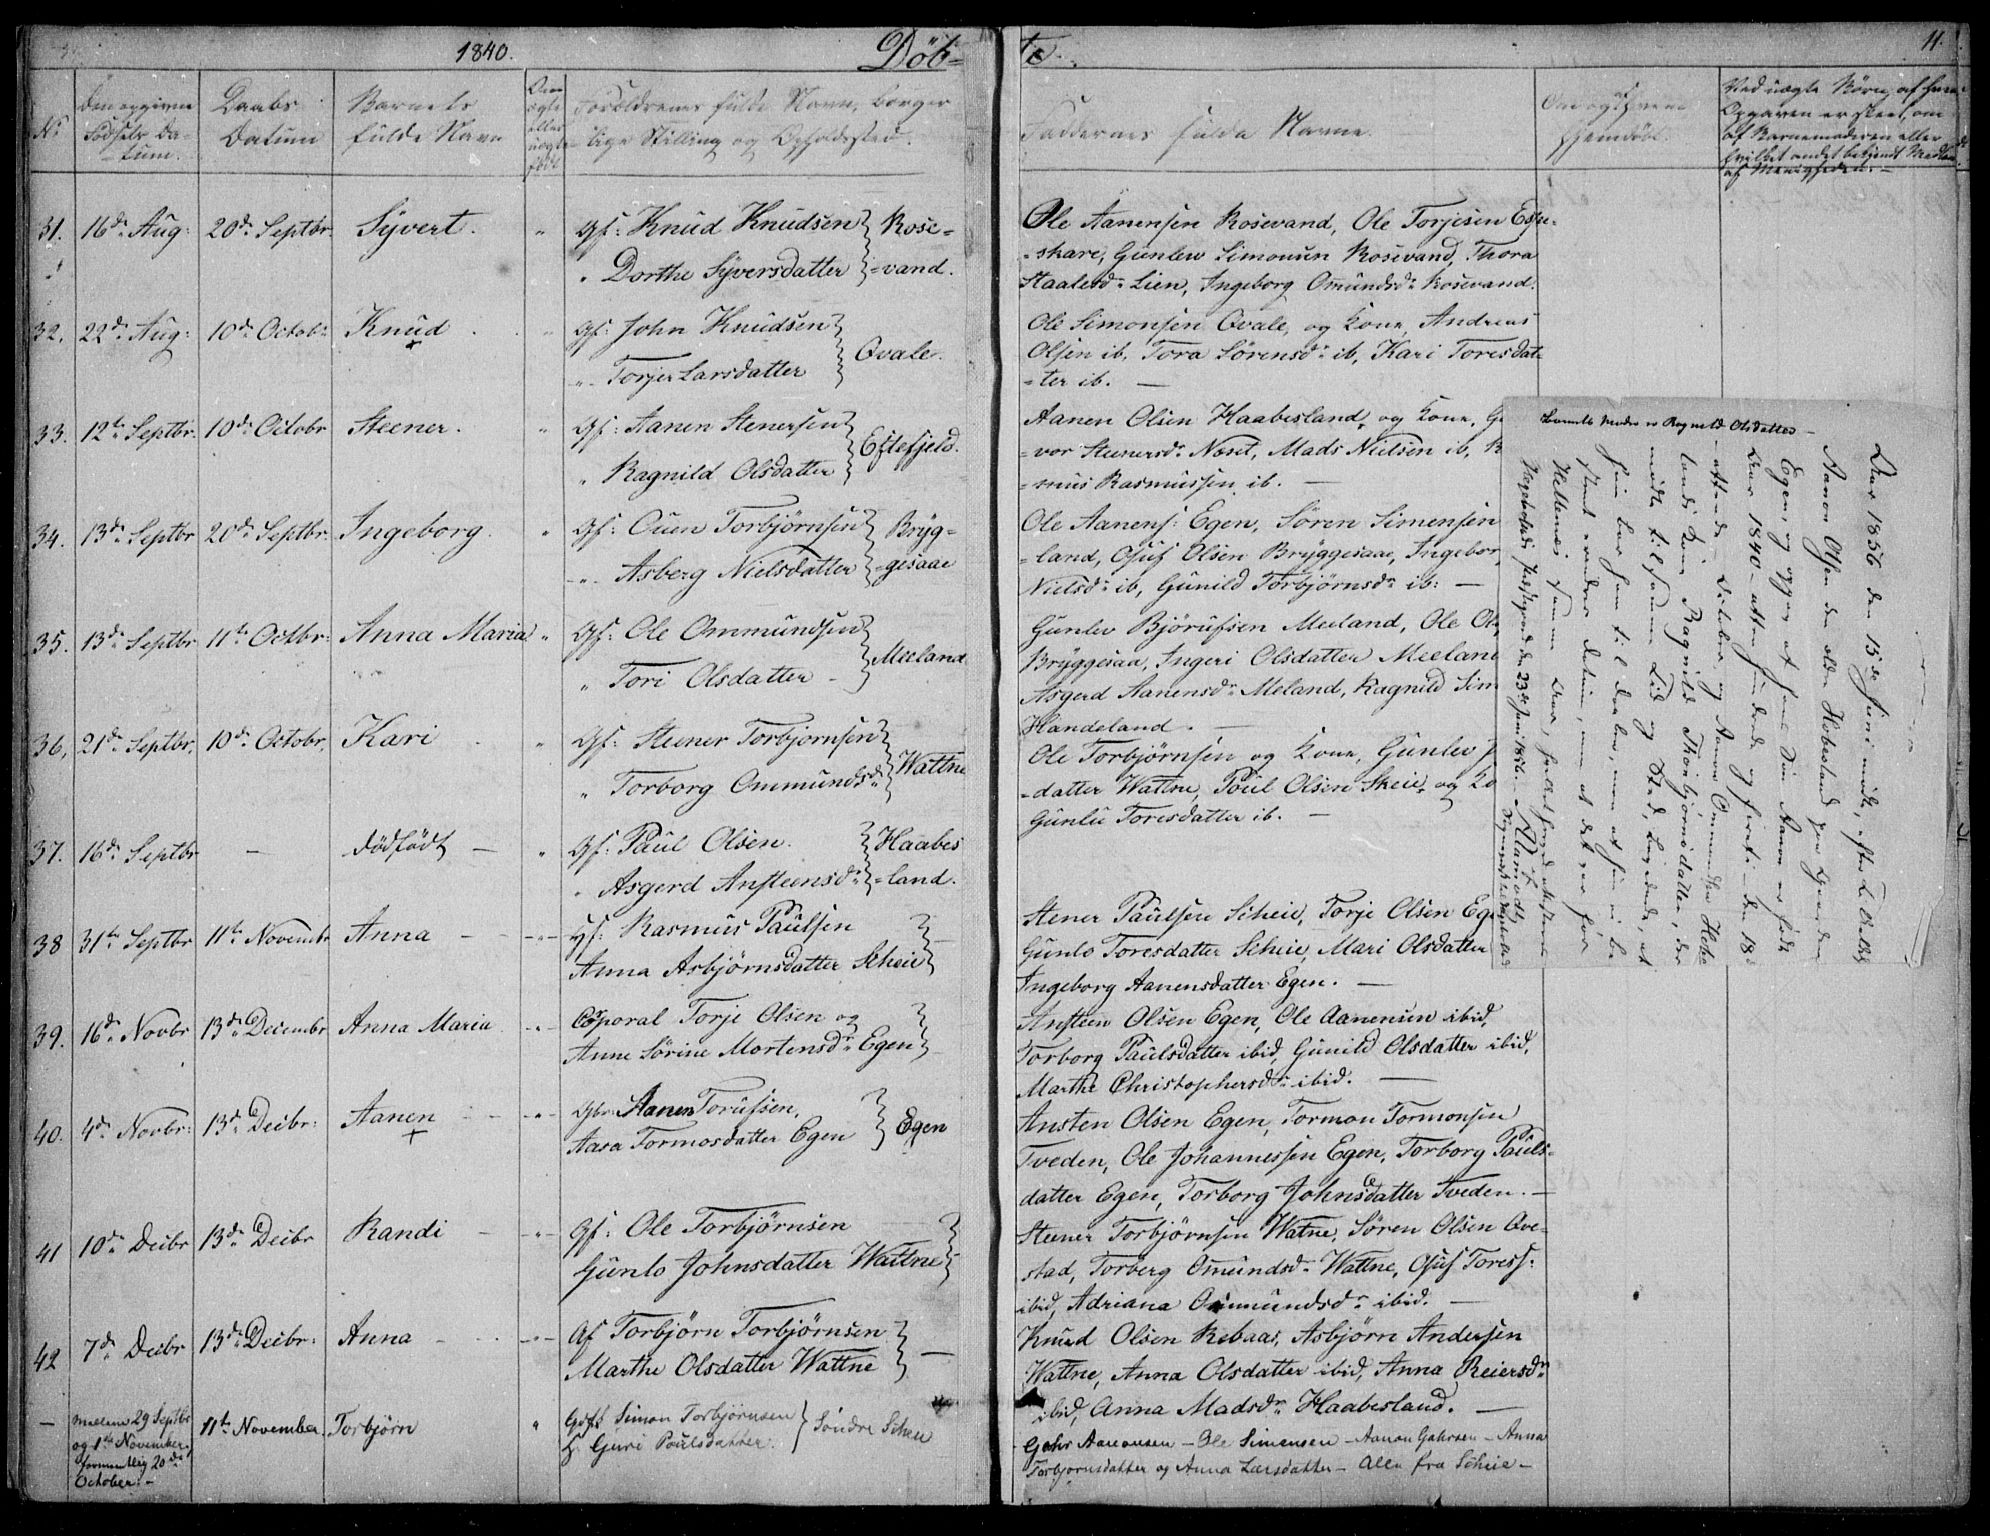 1840.
Döb-
te.
11.
No
Den opgivne
Födsels Da-
tum.
Daabs
Datum
Barnets
fulde Navn
Om
ægte
eller
uægte
född
Forældrenes fulde Navn, borger
lige Stilling og Opholdssted.
Faddernes fulde Navne.
Ved uægte Börn, af hvem
Opgaven er skeet, om
af Barnemoderen eller
hvilket andet bekjendt Medlem
af Menigheden.
31. 16de Aug: 20de Septbr. Syvert. " Gf: Knud Knudsen Rose-
" Dorthe Syversdatter =vand.
Ole Aanensen Rosevand, Ole Torjesen Espe-
-skare, Gunlew Simonsen Rosevand, Thora
Staalesdr Lien, Ingeborg Omundsdr Rosevand.
32, 22de Aug: 10de Octobr Knud " Gf: John Knudsen
" Torjer Larsdatter Qvale.
Ole Simonsen Qvale, og Kone, Andreas
Olsen ib. Tora Sörensdr ib, Kari Toresdat-
=ter ib. —
33. 12te Septbr. 10de Octobr Steener. " Gf: Aanen Stenersen
" Ragnild Olsdatter Eftefjeld.
Aanen Olsen Haabesland, og Kone, G
=vor Steenersdr Næset, Mads Nielsen ib, R
=mus Rasmussen ib. —
34. 13de Septbr 20de Septbr. Ingeborg. " Gf: Ouen Torbjörnsen Brÿg-
" Asberg Nielsdatter =gesaae
Ole Aanens: Egen, Sören Simensen
=land, Osuf Olsen Brÿggesaae, Ingebor
Nielsdr ib, Gunild Torbjörnsdr ib: —
35. 13de Septbr 11te Octbr: Anna Maria " Gf: Ole Ommundsen
" Tori Olsdatter — Meeland
Gunlev Björufsen Meeland, Ole Ols
Brÿggesaa, Ingeri Olsdatter Meelan
Asgerd Aanensdr Meland, Ragnild Sim
Handeland. —
36, 21de Septbr, 10de Octobr, Kari " Gf: Steener Torbjornsen
" Torborg Ommundsdr Wattne
Ole Torbjörnsen og Kone, Gunlev
=datter Wattne, Poul Olsen Skeie, og Ko
Gunlu Toresdatter ib. —
37. 16de Septbr — dödfödt — " Gf: Paul Olsen. Haabes
" Asgerd Ansteensdr =land.
38 31te Septbr 11te Novembr Anna — " Hf: Rasmus Paulsen
Anna Asbjörnsdatter Scheie
Stener Paulsen Scheie, Torje Olsen Eg
Gunlo Toresdatter Scheie, Mari Olsdatter
Ingeborg Aanensdatter Egen. —
39. 16de Novbr 13de Decembr Anna Maria " Coporal Torje Olsen og
Anne Sörine Mortensdr Egen
Ansteen Olsen Egen, Ole Aanensen ibid,
Torborg Paulsdatter ibid, Gunild Olsdatter ibid,
Marthe Christophersdr ibid. —
40. 4de Novbr: 13de Decbr: Aanen " Gbr: Aanen Torufsen,
Aasa Tormosdatter Egen Egen
Ansten Olsen Egen, Tormon Tormonsen
Tveden, Ole Johannessen Egen, Torborg Pauls-
datter Egen, Torborg Johnsdatter Tveden. —
41 10de Decbr 13de Decbr Randi — " Gf: Ole Torbjörnsen
Gunlo Johnsdatter Wattne
Steener Torbjörnsen Watne, Sören Olsen Ove-
stad, Torberg Omundsdr Wattne, Osuf Toress:
ibid, Adriana Ommundsdr ibid. —
42 7de Decbr 13de Decbr: Anna — " Gf Torbjörn Torbjörnsen
Marthe Olsdatter Wattne —
Knud Olsen Rebaas, Asbjörn Andersen
Wattne, Anna Olsdatter ibid, Anna Reiersdr
ibid, Anna Madsdr Haabesland. —
— mellem 29 Septbr
og 1ste November
formentlig 20de
October. —
11te November. Torbjörn " Gdfs Simon Torbjörnsen
H: Guri Poulsdatter. Söndre Scheie
Gahr Aanonsen — Ole Simensen — Aanon Gahrsen — Anna
Torbjornsdatter og Anna Larsdatter — Alle fra Scheie —
Barnets Moder er Ragnild Olsdatter —
Aar 1856 den 15de Juni mödte, efter
Aanon Olsen den ældre Hobesland paa Gaarden
Egen, og opgav at hans Sön Aanon er födt
Aar 1840 atten hundred og firti den 18
attende October, og Aanon Ommundsen
lands Kone Ragnild Thorbjörnsdatter, der
mödte til samme Tid og Sted,
Hægebostads Præstegaard den 23de Juni 1856.